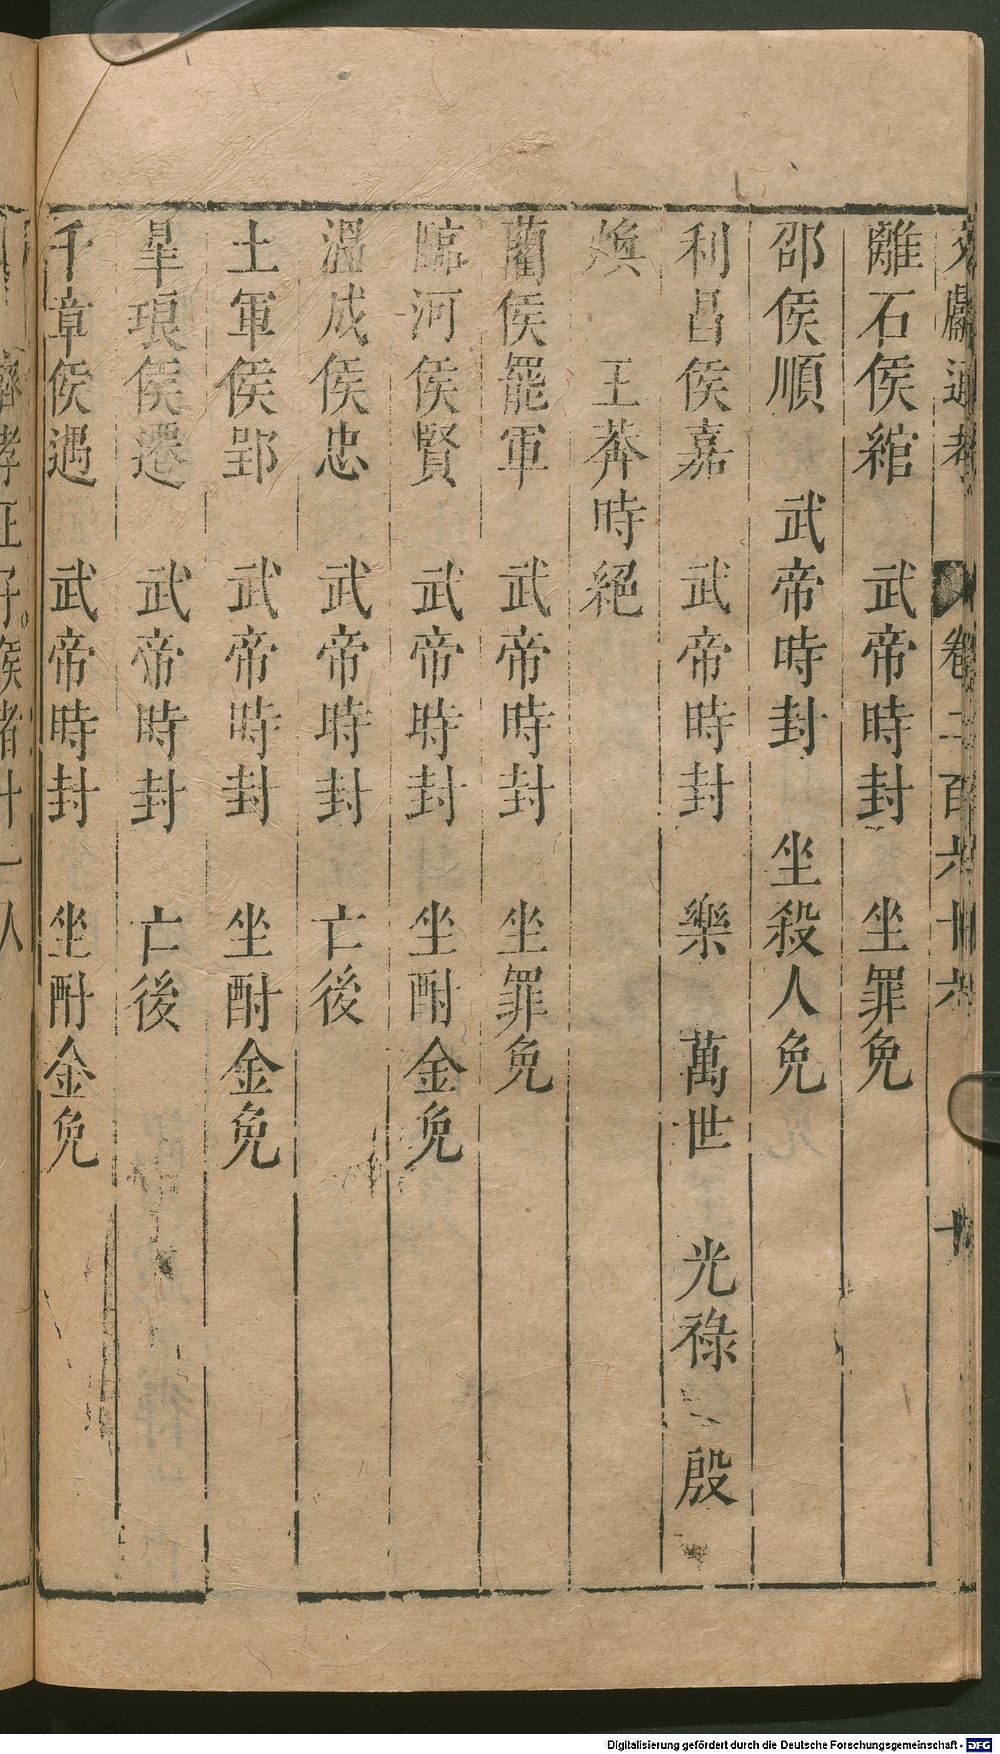 文獻通考　卷二百六十六　十
離石侯綰　武帝時封　坐罪免
邵侯順　武帝時封　坐殺人免
利昌侯嘉　武帝時封　樂　萬世　光祿　殷
㷼　王莽時絕
藺侯罷軍　武帝時封　坐罪免
臨河侯賢　武帝時封　坐酎金免
溫成侯忠　武帝時封　亡後
土軍侯郢　武帝時封　坐酎金免
皋琅侯遷　武帝時封　亡後
千章侯遇　武帝時封　坐酎金免
Digitalisierung gefördert durch die Deutsche Forschungsgemeinschaft - DFG